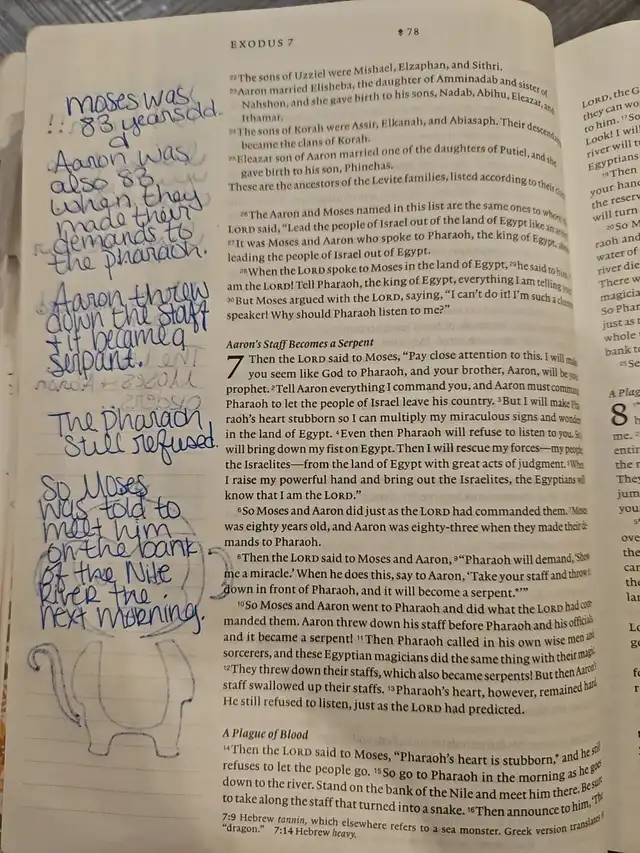 EXODUS 7
78
moses was
!! 83 years old.
&
Aaron was
also 83
when they
made their
demands to
the pharaoh.
Aaron threw
down the staff
& it became a
serpant.
The pharaoh
still refused.
So Moses
was told to
meet him
on the bank
of the Nile
River the
next morning.
22 The sons of Uzziel were Mishael, Elzaphan, and Sithri.
23 Aaron married Elisheba, the daughter of Amminadab and sister of
Nahshon, and she gave birth to his sons, Nadab, Abihu, Eleazar, and
Ithamar.
24 The sons of Korah were Assir, Elkanah, and Abiasaph. Their
became the clans of Korah.
25 Eleazar son of Aaron married one of the daughters of Putiel, and she
gave birth to his son, Phinehas.
These are the ancestors of the Levite families, listed according to their
26 The Aaron and Moses named in this list are the same ones to whom the
LORD said, “Lead the people of Israel out of the land of Egypt like an
27 It was Moses and Aaron who spoke to Pharaoh, the king of Egypt, about
leading the people of Israel out of Egypt.
28 When the LORD spoke to Moses in the land of Egypt, 29 he said to him,
am the LORD! Tell Pharaoh, the king of Egypt, everything I am telling you
30 But Moses argued with the LORD, saying, “I can’t do it! I’m such a clumsy
speaker! Why should Pharaoh listen to me?”
Aaron’s Staff Becomes a Serpent
7 Then the LORD said to Moses, “Pay close attention to this. I will make
you seem like God to Pharaoh, and your brother, Aaron, will be your
prophet. 2 Tell Aaron everything I command you, and Aaron must command
Pharaoh to let the people of Israel leave his country. 3 But I will make Pha-
raoh’s heart stubborn so I can multiply my miraculous signs and wonders
in the land of Egypt. 4 Even then Pharaoh will refuse to listen to you. So
will bring down my fist on Egypt. Then I will rescue my forces—my people,
the Israelites—from the land of Egypt with great acts of judgment. 5 When
I raise my powerful hand and bring out the Israelites, the Egyptians will
know that I am the LORD.”
6 So Moses and Aaron did just as the LORD had commanded them. 7 Moses
was eighty years old, and Aaron was eighty-three when they made their de-
mands to Pharaoh.
8 Then the LORD said to Moses and Aaron, 9 “Pharaoh will demand, ‘Show
me a miracle.’ When he does this, say to Aaron, ‘Take your staff and throw it
down in front of Pharaoh, and it will become a serpent.*’”
10 So Moses and Aaron went to Pharaoh and did what the LORD had com-
manded them. Aaron threw down his staff before Pharaoh and his officials,
and it became a serpent! 11 Then Pharaoh called in his own wise men and
sorcerers, and these Egyptian magicians did the same thing with their magic.
12 They threw down their staffs, which also became serpents! But then Aaron’s
staff swallowed up their staffs. 13 Pharaoh’s heart, however, remained hard.
He still refused to listen, just as the LORD had predicted.
A Plague of Blood
14 Then the LORD said to Moses, “Pharaoh’s heart is stubborn,* and he still
refuses to let the people go. 15 So go to Pharaoh in the morning as he goes
down to the river. Stand on the bank of the Nile and meet him there. Be sure
to take along the staff that turned into a snake. 16 Then announce to him, ‘The
7:9 Hebrew tannin, which elsewhere refers to a sea monster. Greek version translates
“dragon.” 7:14 Hebrew heavy.
LORD, the G
they can wo
to him. 17 So
Look! I will
river will t
Egyptians
18 Then
your hand
the reserv
will turn
20 So M
raoh and
water of
river die
There w
magicia
So Phar
just as t
whole
bank to
25 Se
A Plag
8
me. 2
entir
the r
They
jum
you
ove
the
can
the
lar
Lo
go